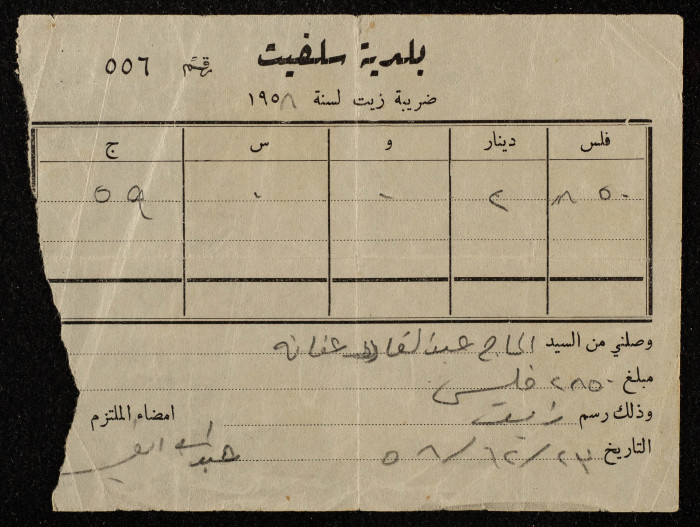 بلدية سلفيت
رقم ٥٥٦
ضريبة زيت لسنة ١٩٥٨
فلس دينار و س ج
٨٥٠ ٢ ٠ ٠ ٥٩
وصلني من السيد الحاج عبد القادر عفانه
مبلغ ٢٨٥٠ فلس
وذلك رسم زيت امضاء الملتزم
التاريخ ٢٣/١٢/٥٨